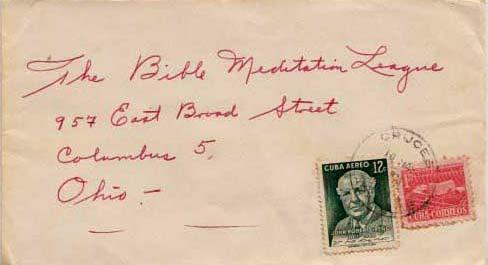 The Bible Meditation League
957 East Broad Street
Columbus 5,
Ohio –
CRUCES
CUBA AEREO 12c
JOHN ROBERT GREGG
CORREOS